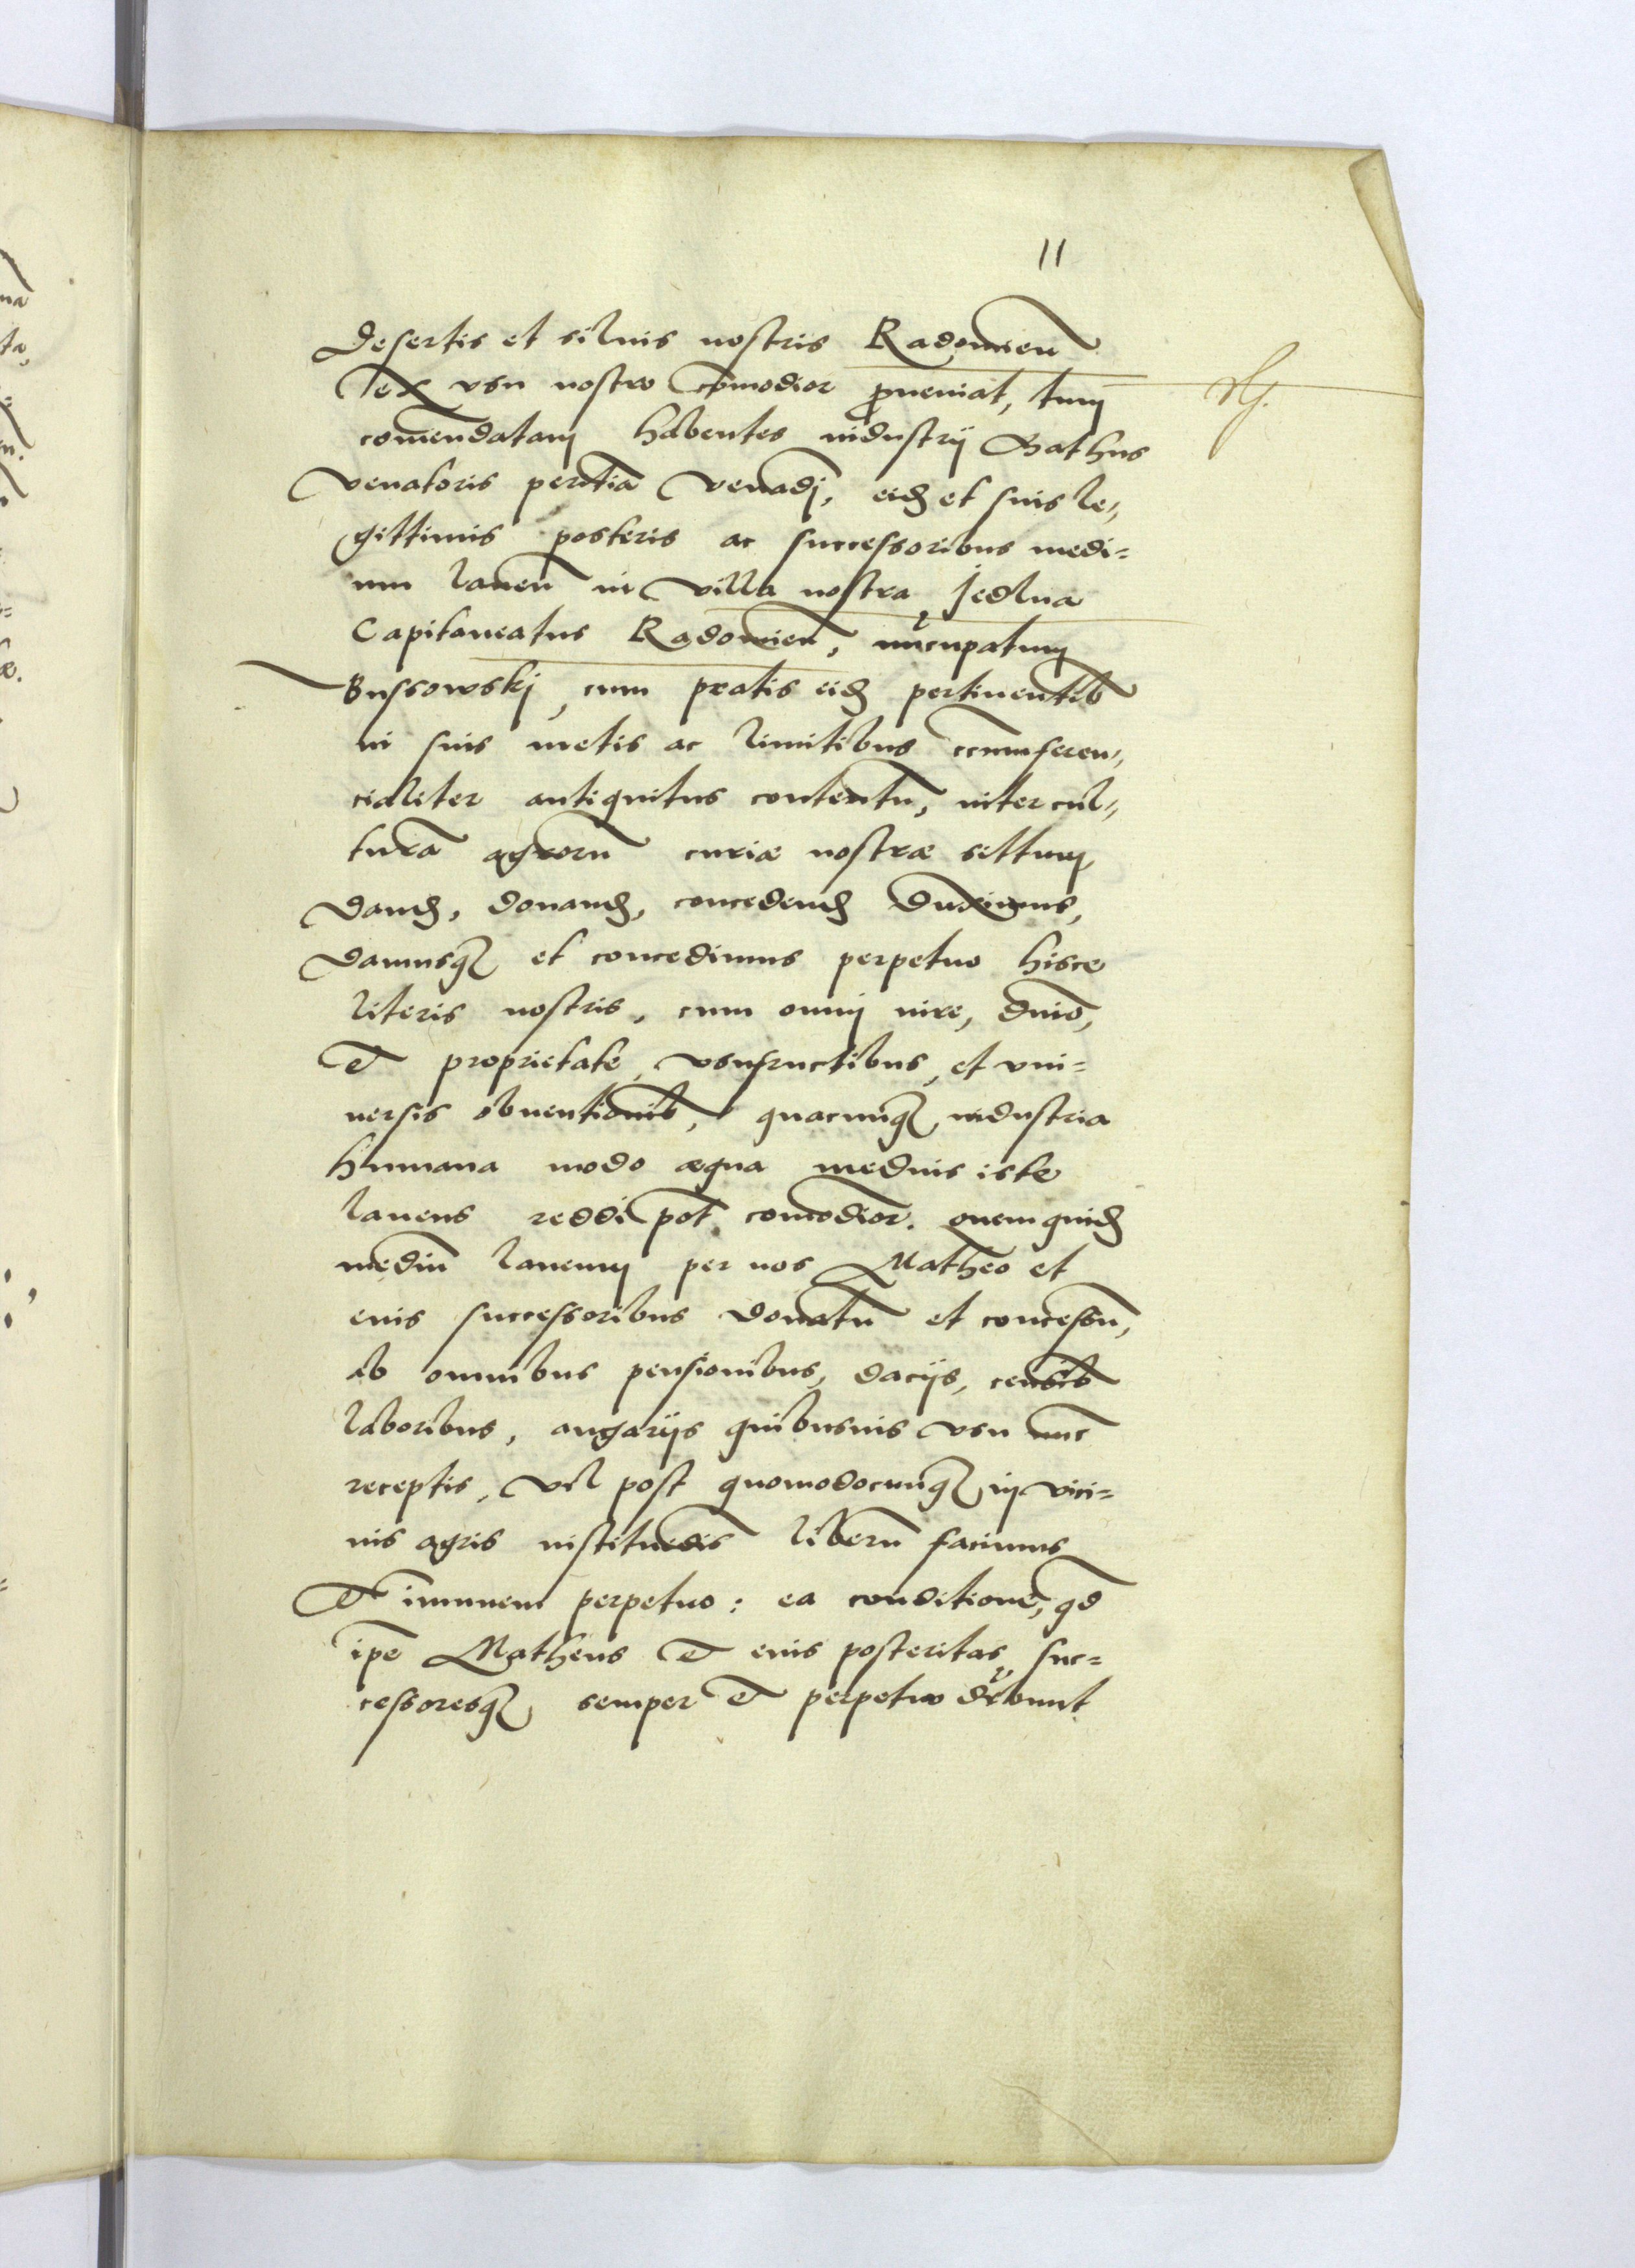 11
desertis et siluis nostris Radomien̄
ex vsu nostro com̄odior ꝓueniat, tum
com̄endatam habentes industrij Mathus
venatoris peritiā venādj, eidꝫ et suis le„
gittimis posteris ac successoribus medi=
um laneū in villa nostra Jedlna
Capitaneatus Radomien̄, nūcupatum
Bussowskj, cum pratis eidꝫ pertinentib
in suis metis ac limitibus circumferen„
cialiter antiquitus contentū, inter cul„
turā agrorū curiæ nostræ sittum,
dandꝫ, donandꝫ, concedendꝫ duximus,
damusqꝫ et concedimus perpetuo hisce
literis nostris, cum omnj iure, dn̄io,
et proprietate, vsufructibus, et vni=
uersis obuentionib, quacunqꝫ industria
humana modo æqua medius iste
laneus reddi pōt com̄odior. quemquidꝫ
mediū laneum per nos Matheo et
eius successoribus donatū et concessū,
ab omnibus pensionibus, dacijs, censib
laboribus, angarijs quibusuis vsu nūc
receptis, vel post quomodocunqꝫ in vici=
nis agris instituēdis liberū facimus
et im̄unem perpetuo: ea conditione, qd̄
ip̄e Matheus et eius posteritas, suc=
cessoresqꝫ semper et perpetuo debunt